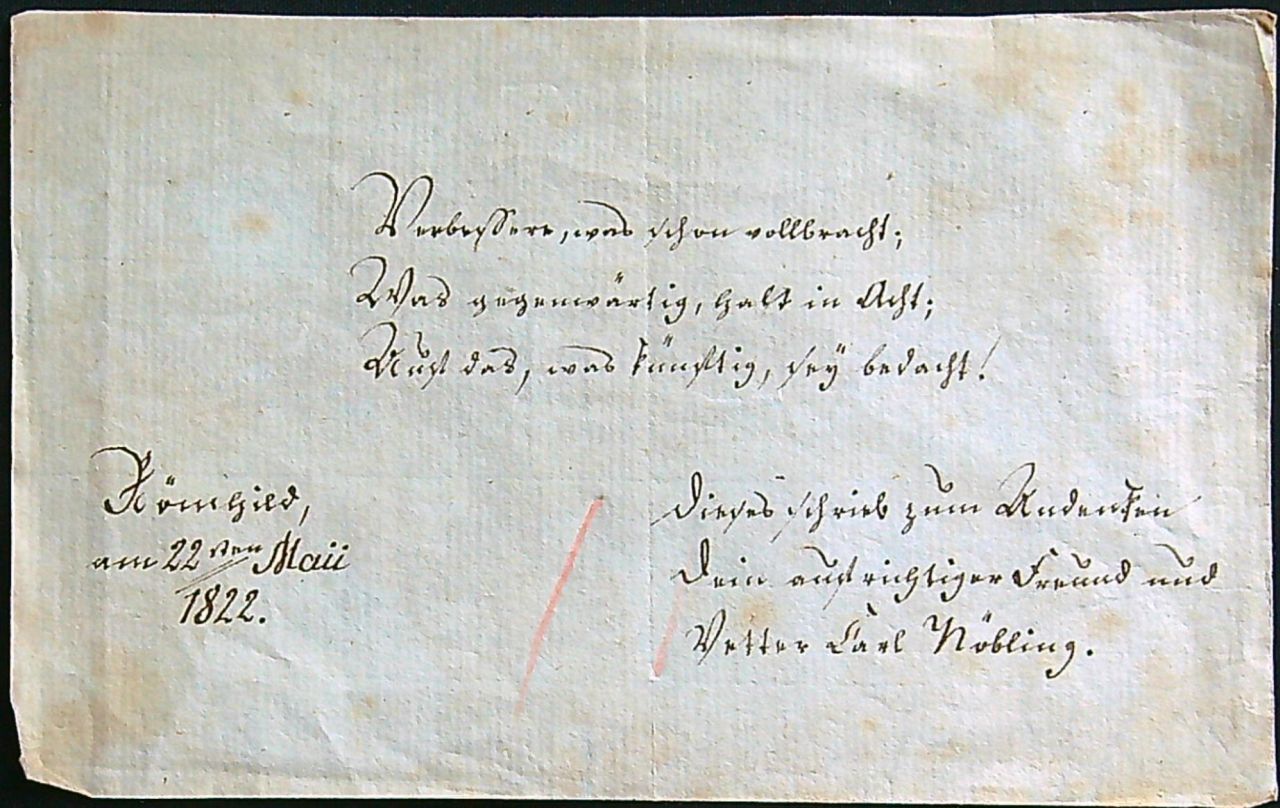 Verbessere, was schon vollbracht;
Was gegenwärtig, halt in Acht;
Auf das, was künftig, sey bedacht!
Römhild,
am 22sten Maii
1822.
Dieses schrieb zum Andenken
Dein aufrichtiger Freund und
Vetter Carl Nöbling.